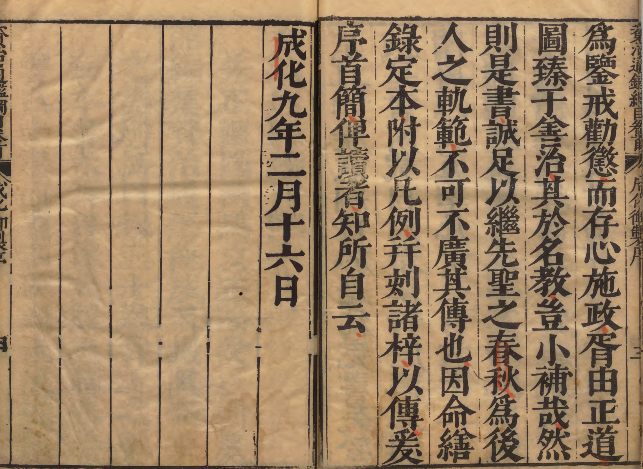 為鑒戒勸懲而存心施政胥由正道
圖臻于善治其於名教豈小補哉然
則是書誠足以繼先聖之春秋為後
人之軌範不可不廣其傳也因命繕
錄定本附以凡例并刻諸梓以傳爰
序首簡俾讀者知所自云
成化九年二月十六日